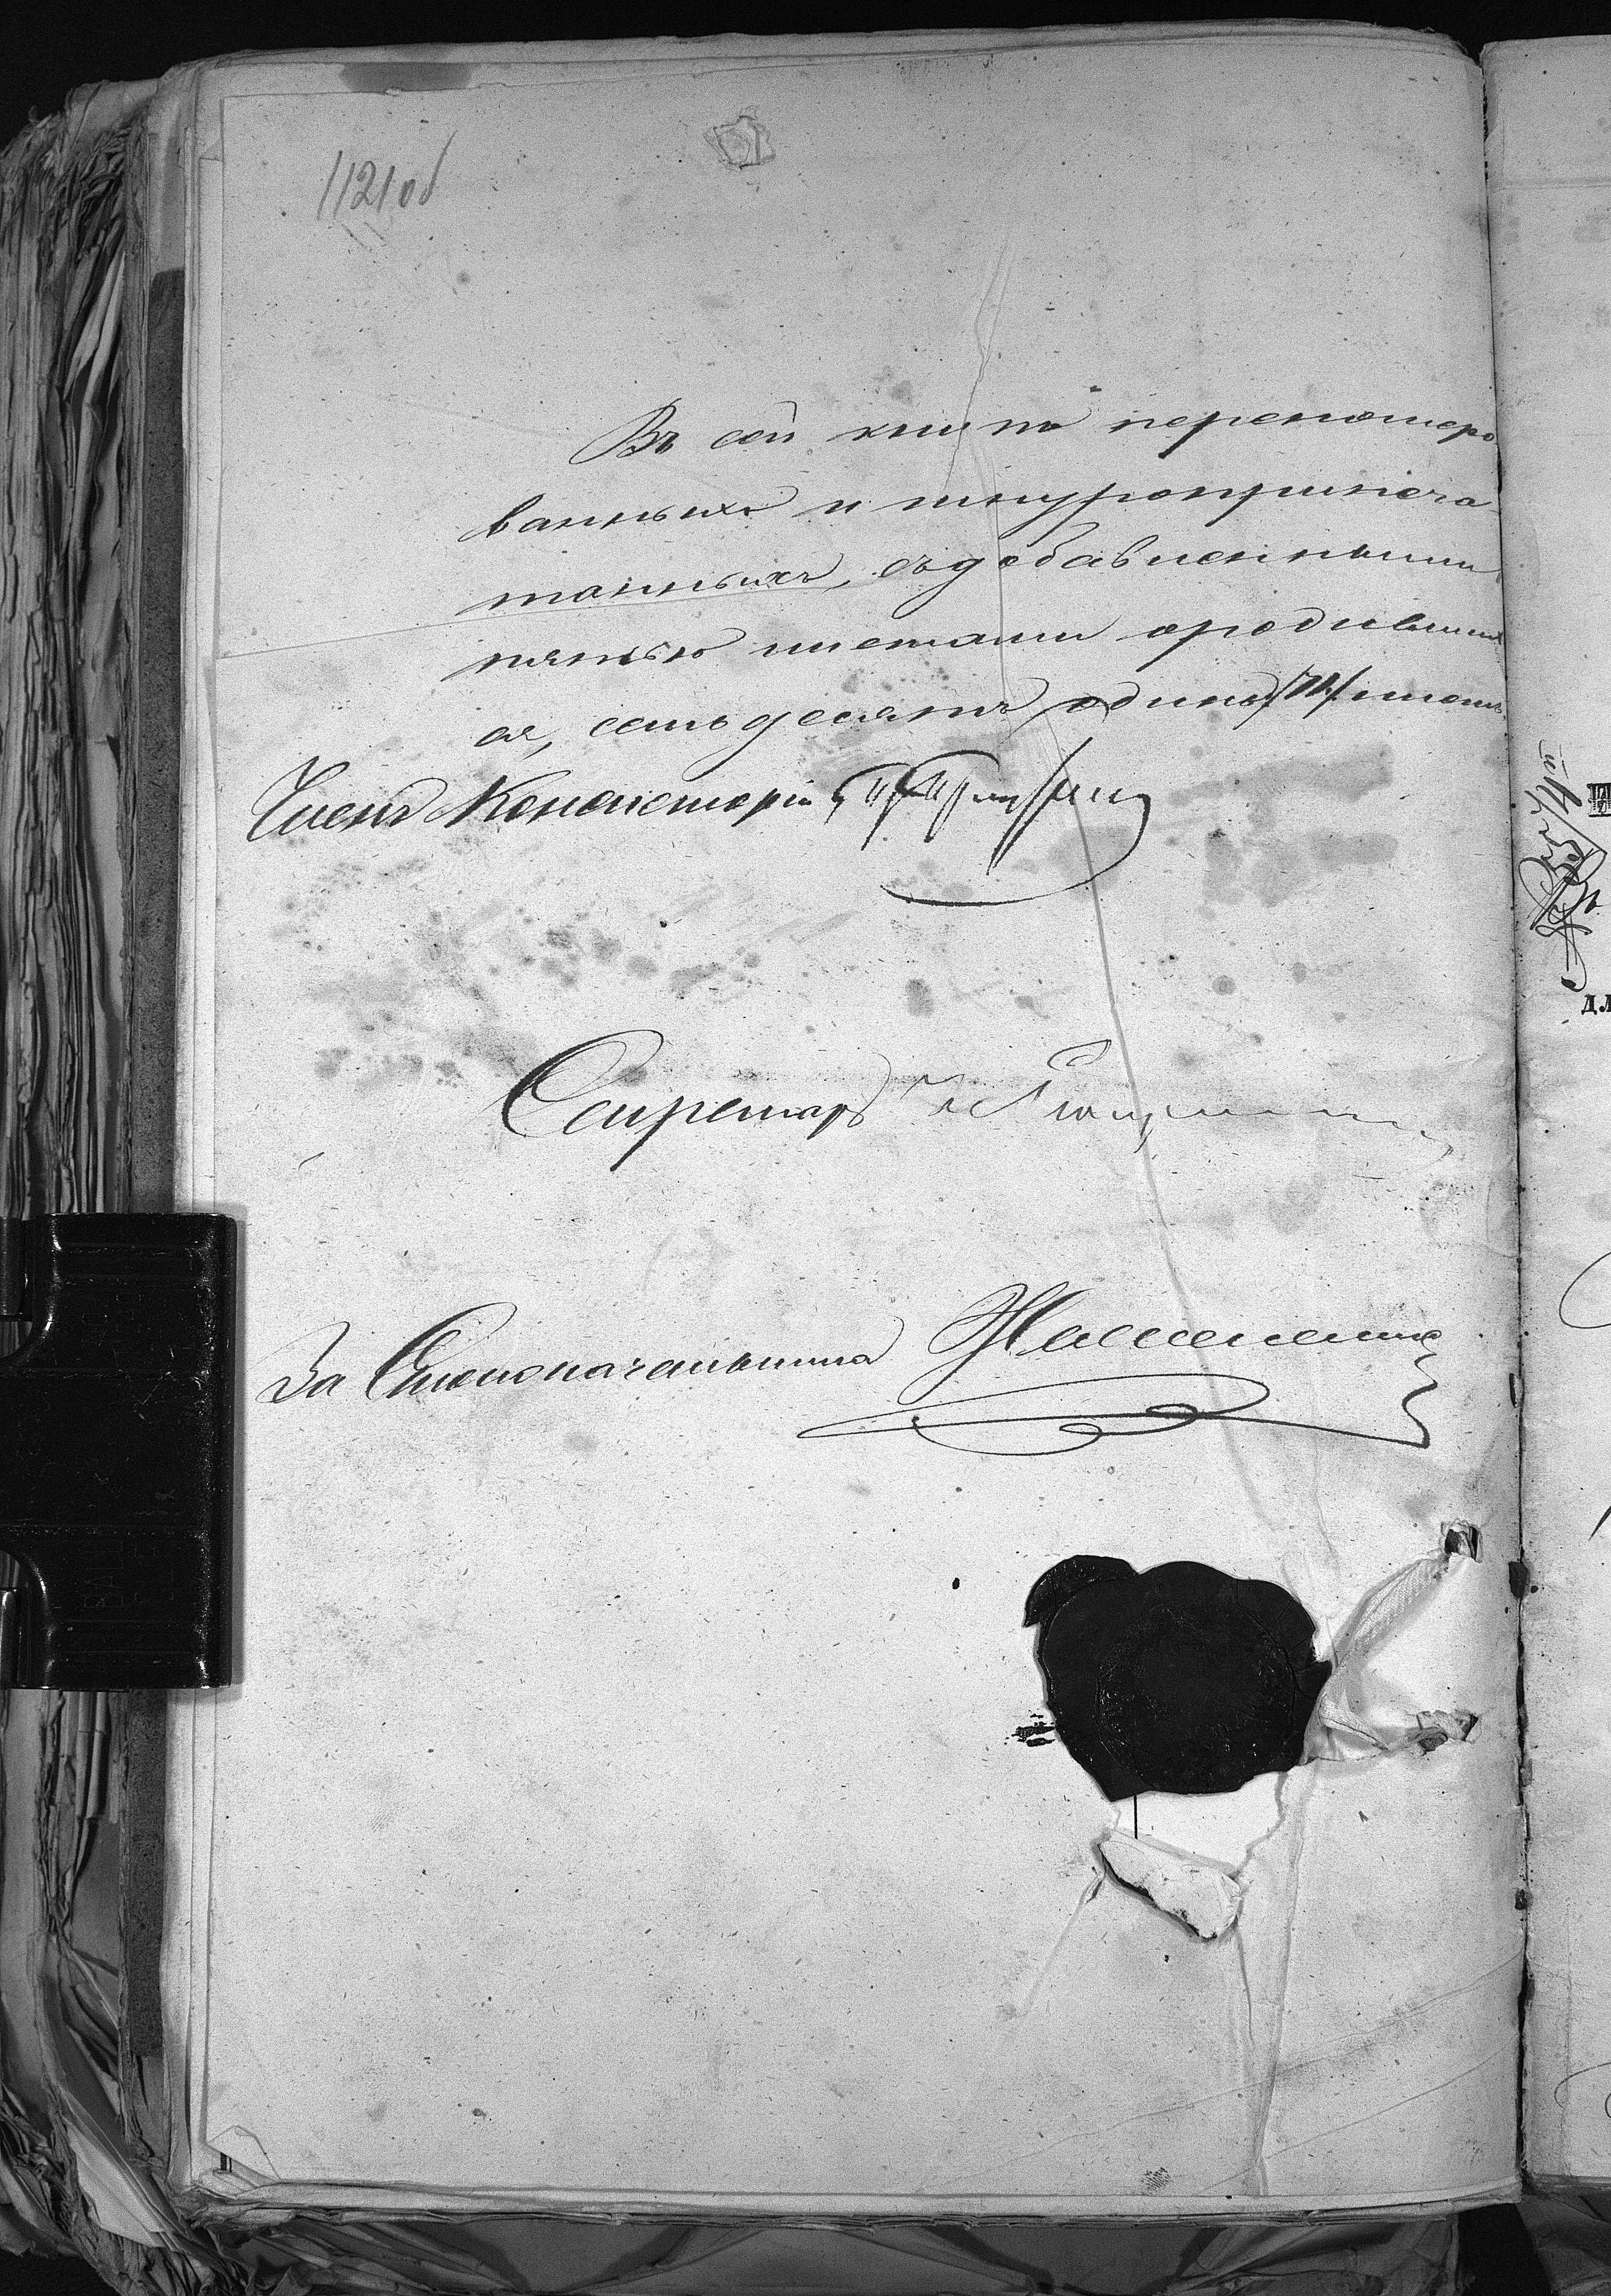 1121 об
Въ сей книгѣ перенумеро
ванныхъ и шнуроприпеча
танныхъ, съ добавленными
пятью листами о родивших
ся, семьдесятъ одинъ /71/ листъ.
Членъ Консисторіи
Секретарь
За Столоначальника
ДЛ